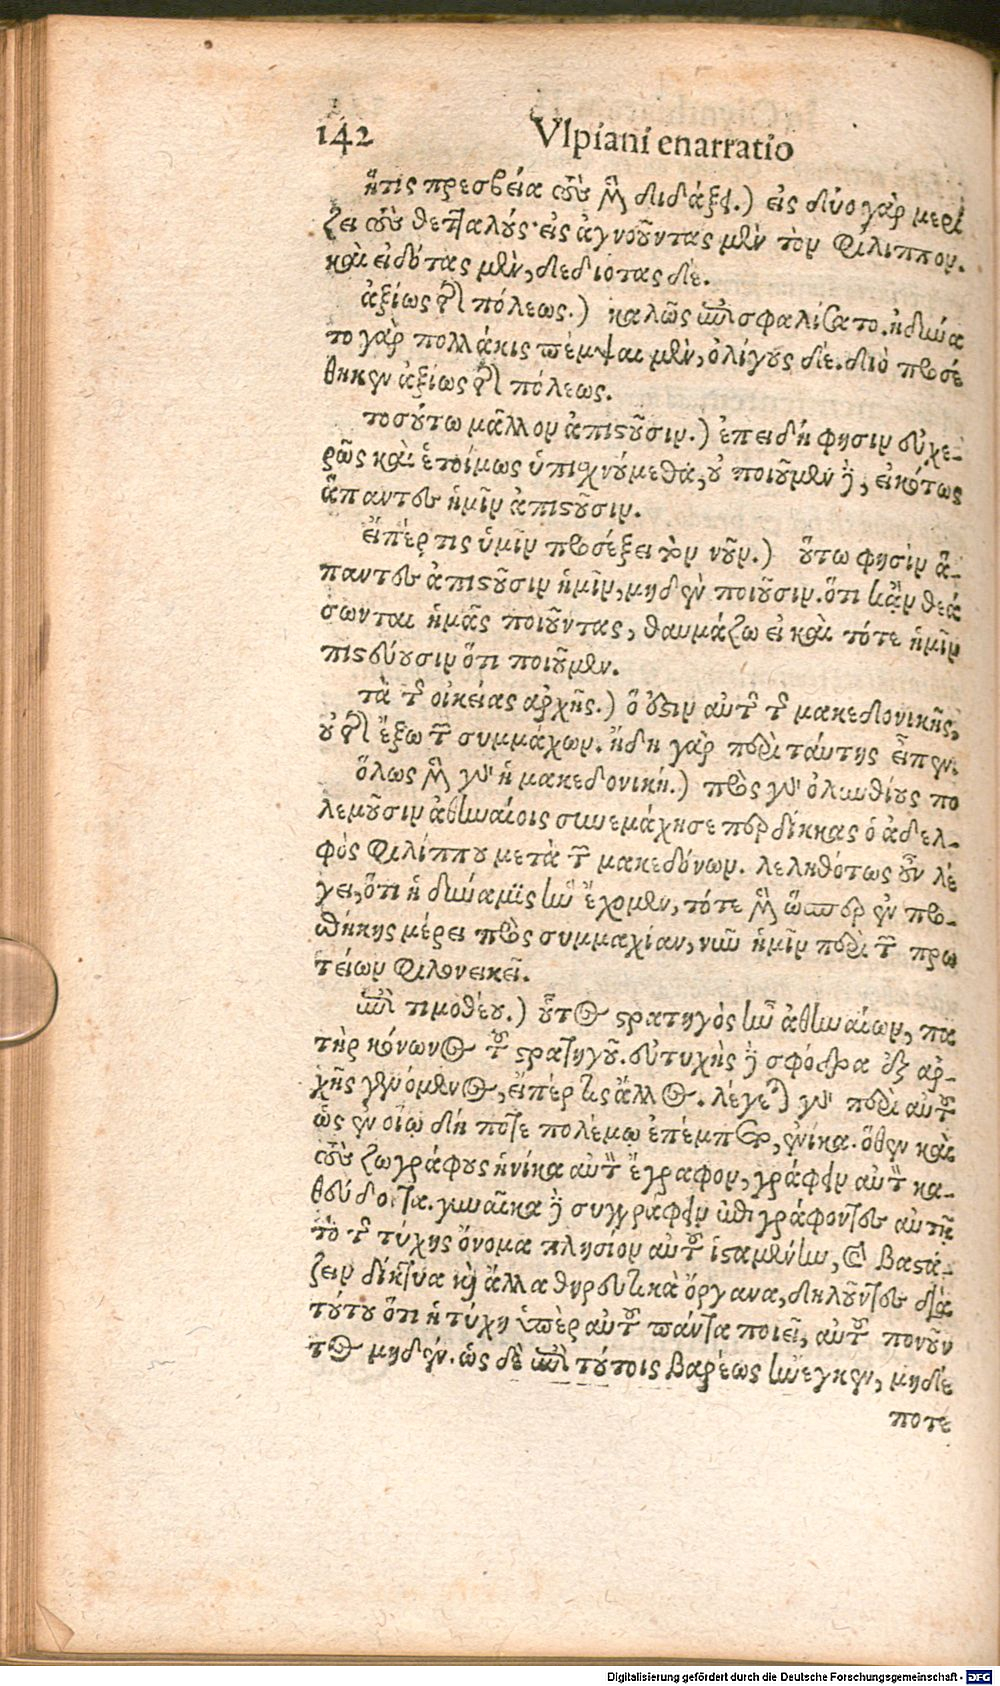 142 Vlpiani enarratio
ἥτις πρεσβεία τοὺς μὲν διδάξει.) εἰς δύο γὰρ μερί
ζει τοὺς θετταλούς· εἰς ἀγνοοῦντας μὲν τὸν Φίλιππον.
καὶ εἰδότας μὲν, δεδιότας δέ.
ἀξίως τῆς πόλεως.) καλῶς ἐπισφαλίσατο. ἠδύνα
το γὰρ πολλάκις πέμψαι μὲν, ὀλίγους δέ. διὸ προσέ
θηκεν ἀξίως τῆς πόλεως.
τοσούτω μᾶλλον ἀπιστοῦσιν.) ἐπειδή φησιν εὐχε-
ρῶς καὶ ἑτοίμως ὑπισχνούμεθα, οὐ ποιοῦμεν δὲ, εἰκότως
ἅπαντες ἡμῖν ἀπιστοῦσιν.
εἴπέρ τις ὑμῖν προσέξει τὸν νοῦν.) οὕτω φησὶν ἅ-
παντες ἀπιστοῦσιν ἡμῖν, μηδὲν ποιοῦσιν. ὅτι κἂν θεά
σωνται ἡμᾶς ποιοῦντας, θαυμάζω εἰ καὶ τότε ἡμῖν
πιστεύουσιν ὅτι ποιοῦμεν.
τὰ τῆς οἰκείας ἀρχῆς.) ὅ ἐστιν αὐτῆς τῆς μακεδονικῆς,
οὐ τῆς ἔξω τῶν συμμάχων. ἤδη γὰρ περὶ ταύτης εἶπεν.
ὅλως μὲν γὰρ ἡ μακεδονική.) πρὸς γὰρ ὀλυνθίους πο
λεμοῦσιν ἀθηναίοις συνεμάχησε περδίκκας ὁ ἀδελ-
φὸς Φιλίππου μετὰ τῶν μακεδόνων. λεληθότως οὖν λέ
γει, ὅτι ἡ δύναμις ἣν ἔχομεν, τότε μὲν ὥσπερ ἐν προ-
θήκης μέρει πρὸς συμμαχίαν, νῦν ἡμῖν περὶ τῶν πρω
τείων φιλονεικεῖ.
ἐπὶ τιμοθέου.) οὗτος στρατηγὸς ἦν ἀθηναίων, πα
τὴρ κόνωνος τοῦ στρατηγοῦ. εὐτυχὴς δὲ σφόδρα ἐξ ἀρ-
χῆς γενόμενος, εἴπέρ τις ἄλλος. λέγεται γὰρ περὶ αὐτοῦ
ὡς ἐν οἵῳ δή ποτε πολέμῳ ἐπέμπετο, ἐνίκα. ὅθεν καὶ
τοὺς ζωγράφους ἡνίκα αὐτὸν ἔγραφον, γράφειν αὐτὸν κα-
θεύδοντα. γυναῖκα δὲ συγγράφειν ἐπιγράφοντες αὐτῇ
τὸ τῆς τύχης ὄνομα πλησίον αὐτοῦ ἱσταμένην, καὶ βαστά-
ζειν δίκτυα καὶ ἄλλα θηρευτικὰ ὄργανα, δηλοῦντες διὰ
τούτου ὅτι ἡ τύχη ὑπὲρ αὐτοῦ πάντα ποιεῖ, αὐτοῦ πονοῦν
τος μηδέν. ὡς δὲ ἐπὶ τούτοις βαρέως ἤνεγκεν, μηδέ
ποτε
Digitalisierung gefördert durch die Deutsche Forschungsgemeinschaft - DFG